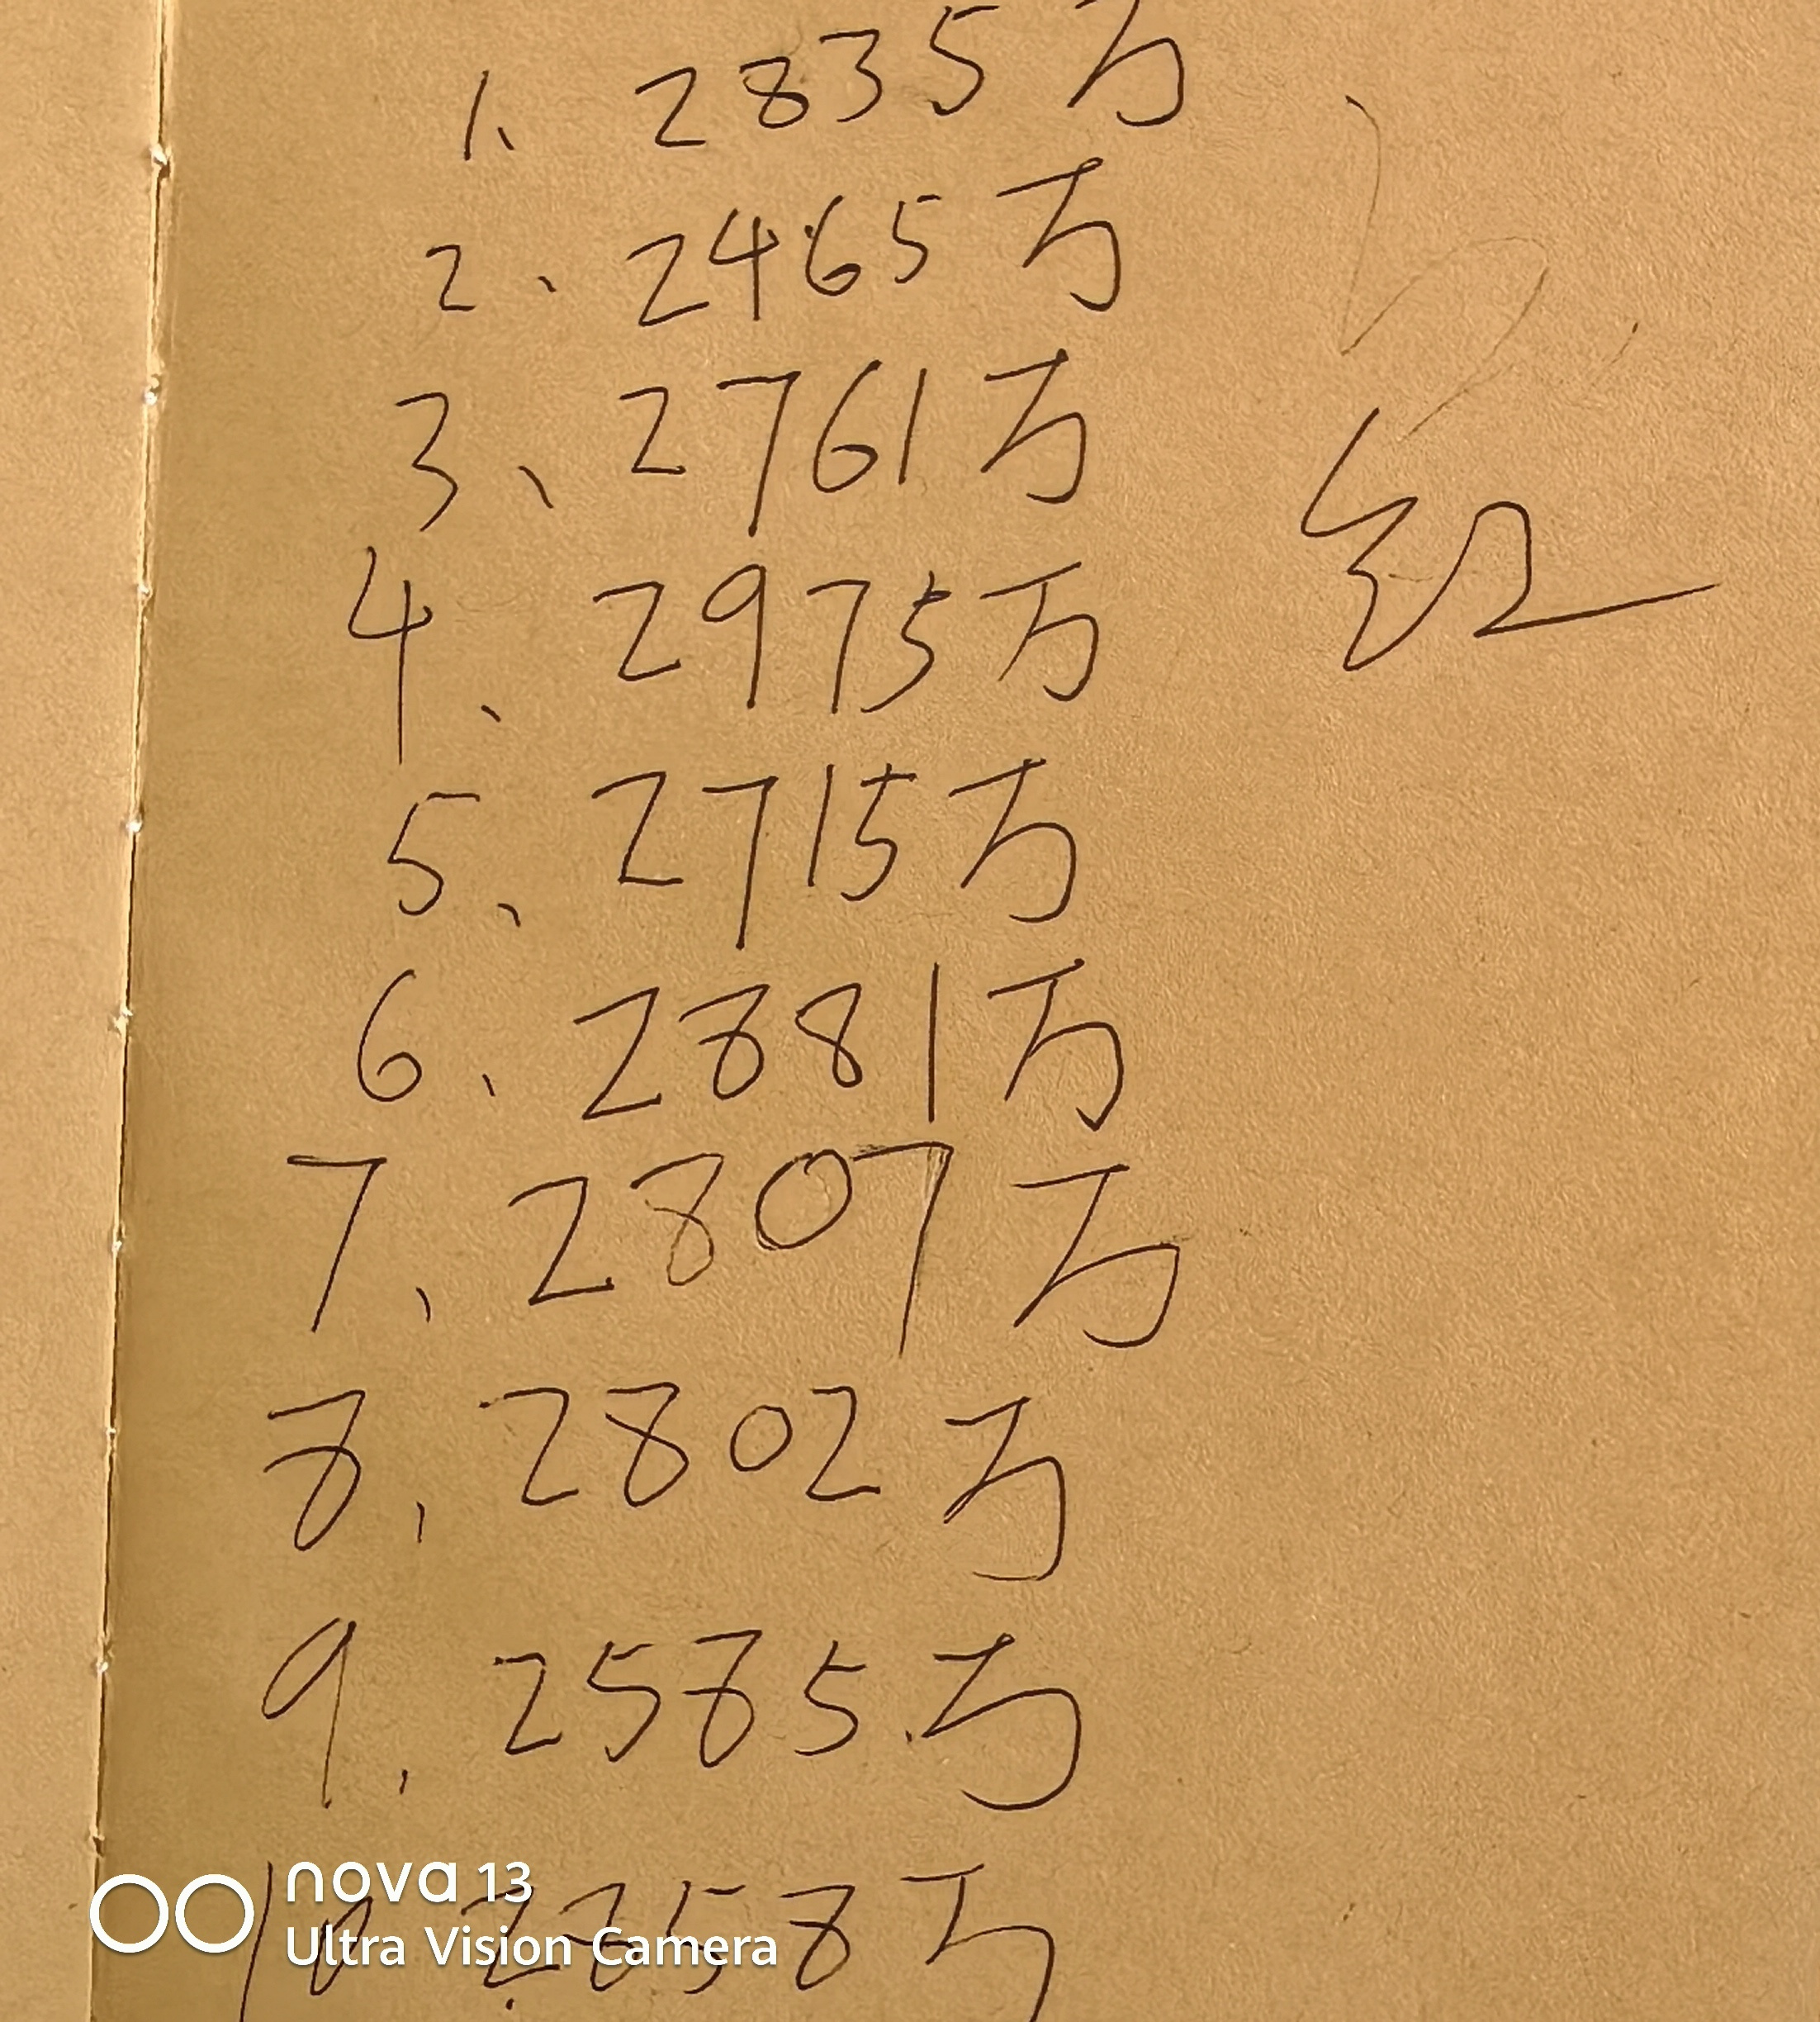 1、2835万
2、2465万
3、2761万
红
4、2975万
5、2715万
6、2881万
7、2807万
8、2802万
9、2585万
10 2858万
nova 13
Ultra Vision Camera